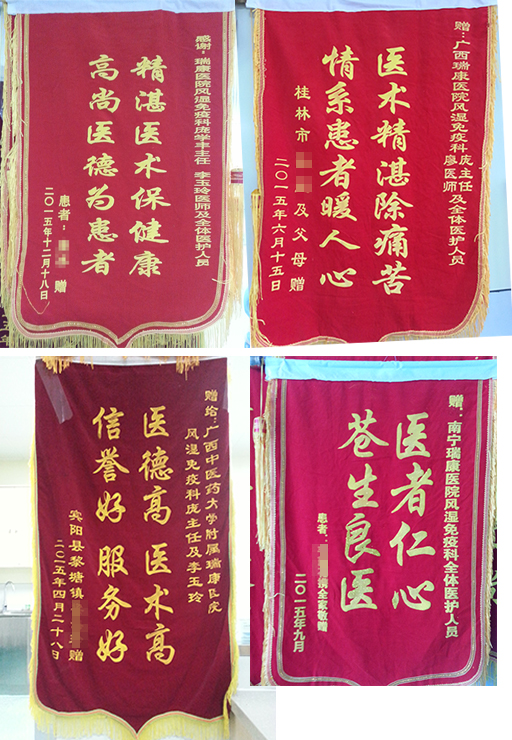 感谢：瑞康医院风湿免疫科庞学丰主任 李玉玲医师及全体医护人员
精湛医术保健康
高尚医德为患者
患者： 赠
二〇一五年十二月十八日
赠：广西瑞康医院风湿免疫科庞主任
廖医师及全体医护人员
医术精湛除痛苦
情系患者暖人心
桂林市 及父母赠
二〇一五年六月十五日
赠给：广西中医药大学附属瑞康医院
风湿免疫科庞主任及李玉玲
医德高 医术高
信誉好 服务好
宾阳县黎塘镇 赠
二〇一五年四月二十八日
赠：南宁瑞康医院风湿免疫科全体医护人员
医者仁心
苍生良医
患者： 全家敬赠
二〇一五年九月